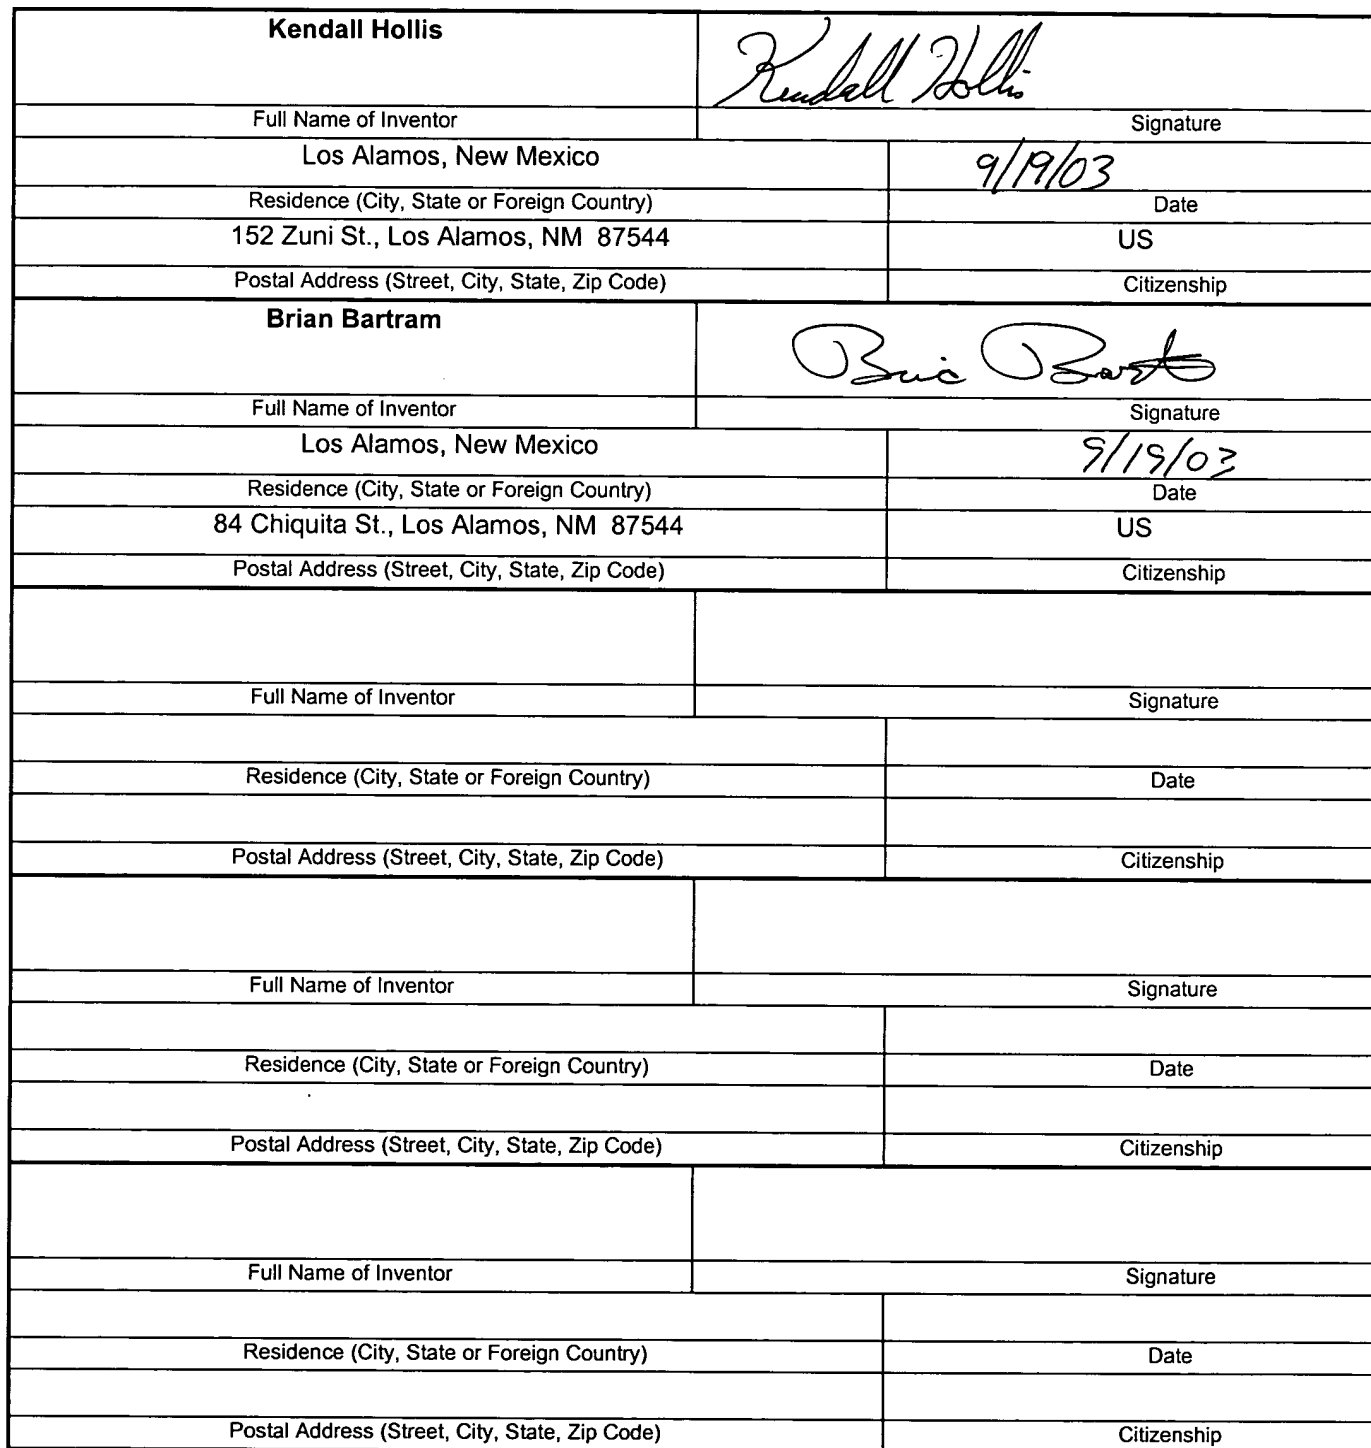 Kendall Hollis Kendall Hollis
Full Name of Inventor Signature
Los Alamos, New Mexico 9/19/03
Residence (City, State or Foreign Country) Date
152 Zuni St., Los Alamos, NM 87544 US
Postal Address (Street, City, State, Zip Code) Citizenship
Brian Bartram
Full Name of Inventor Signature
Los Alamos, New Mexico 9/19/03
Residence (City, State or Foreign Country) Date
84 Chiquita St., Los Alamos, NM 87544 US
Postal Address (Street, City, State, Zip Code) Citizenship
Full Name of Inventor Signature
Residence (City, State or Foreign Country) Date
Postal Address (Street, City, State, Zip Code) Citizenship
Full Name of Inventor Signature
Residence (City, State or Foreign Country) Date
Postal Address (Street, City, State, Zip Code) Citizenship
Full Name of Inventor Signature
Residence (City, State or Foreign Country) Date
Postal Address (Street, City, State, Zip Code) Citizenship